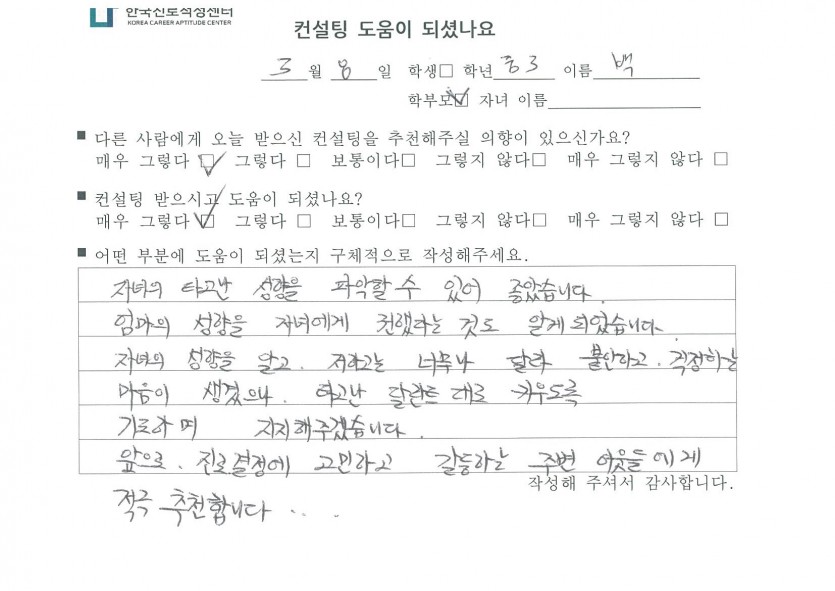 한국진로적성센터
KOREA CAREER APTITUDE CENTER
컨설팅 도움이 되셨나요
3월 8일 학생□ 학년 중3 이름 백
학부모☑ 자녀 이름
■ 다른 사람에게 오늘 받으신 컨설팅을 추천해주실 의향이 있으신가요?
매우 그렇다 ☑ 그렇다 □ 보통이다□ 그렇지 않다□ 매우 그렇지 않다 □
■ 컨설팅 받으시고 도움이 되셨나요?
매우 그렇다 ☑ 그렇다 □ 보통이다□ 그렇지 않다□ 매우 그렇지 않다 □
■ 어떤 부분에 도움이 되셨는지 구체적으로 작성해주세요.
자녀의 타고난 성향을 파악할 수 있어 좋았습니다.
엄마의 성향을 자녀에게 것도 알게 되었습니다.
자녀의 성향을 알고. 저하고는 너무나 달라 불안하고. 걱정하는
마음이 생겼으나. 타고난 달란트 대로 키우도록
기도하며 지지해주겠습니다.
앞으로. 진로결정에 고민하고 갈등하는 주변 이웃들에게
작성해 주셔서 감사합니다.
적극 추천합니다....